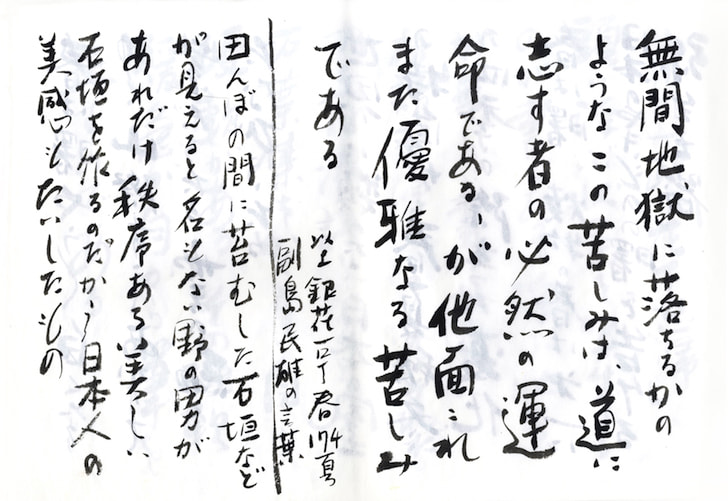 無間地獄に落ちるかの
ような この苦しみは、道に
志す者の必然の運
命である、が他面これ
また優雅なる苦しみ
である
以上銀花 春174頁
副島民雄の言葉
田んぼの間に苔むした石垣など
が見えると名もない野の男が
あれだけ秩序ある美しい
石垣を作るのだから日本人の
美感もたいしたもの